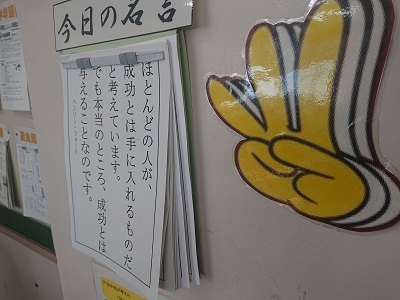 今日の名言
ほとんどの人が、
成功とは手に入れるものだ
と考えています。
でも本当のところ、成功とは
与えることなのです。